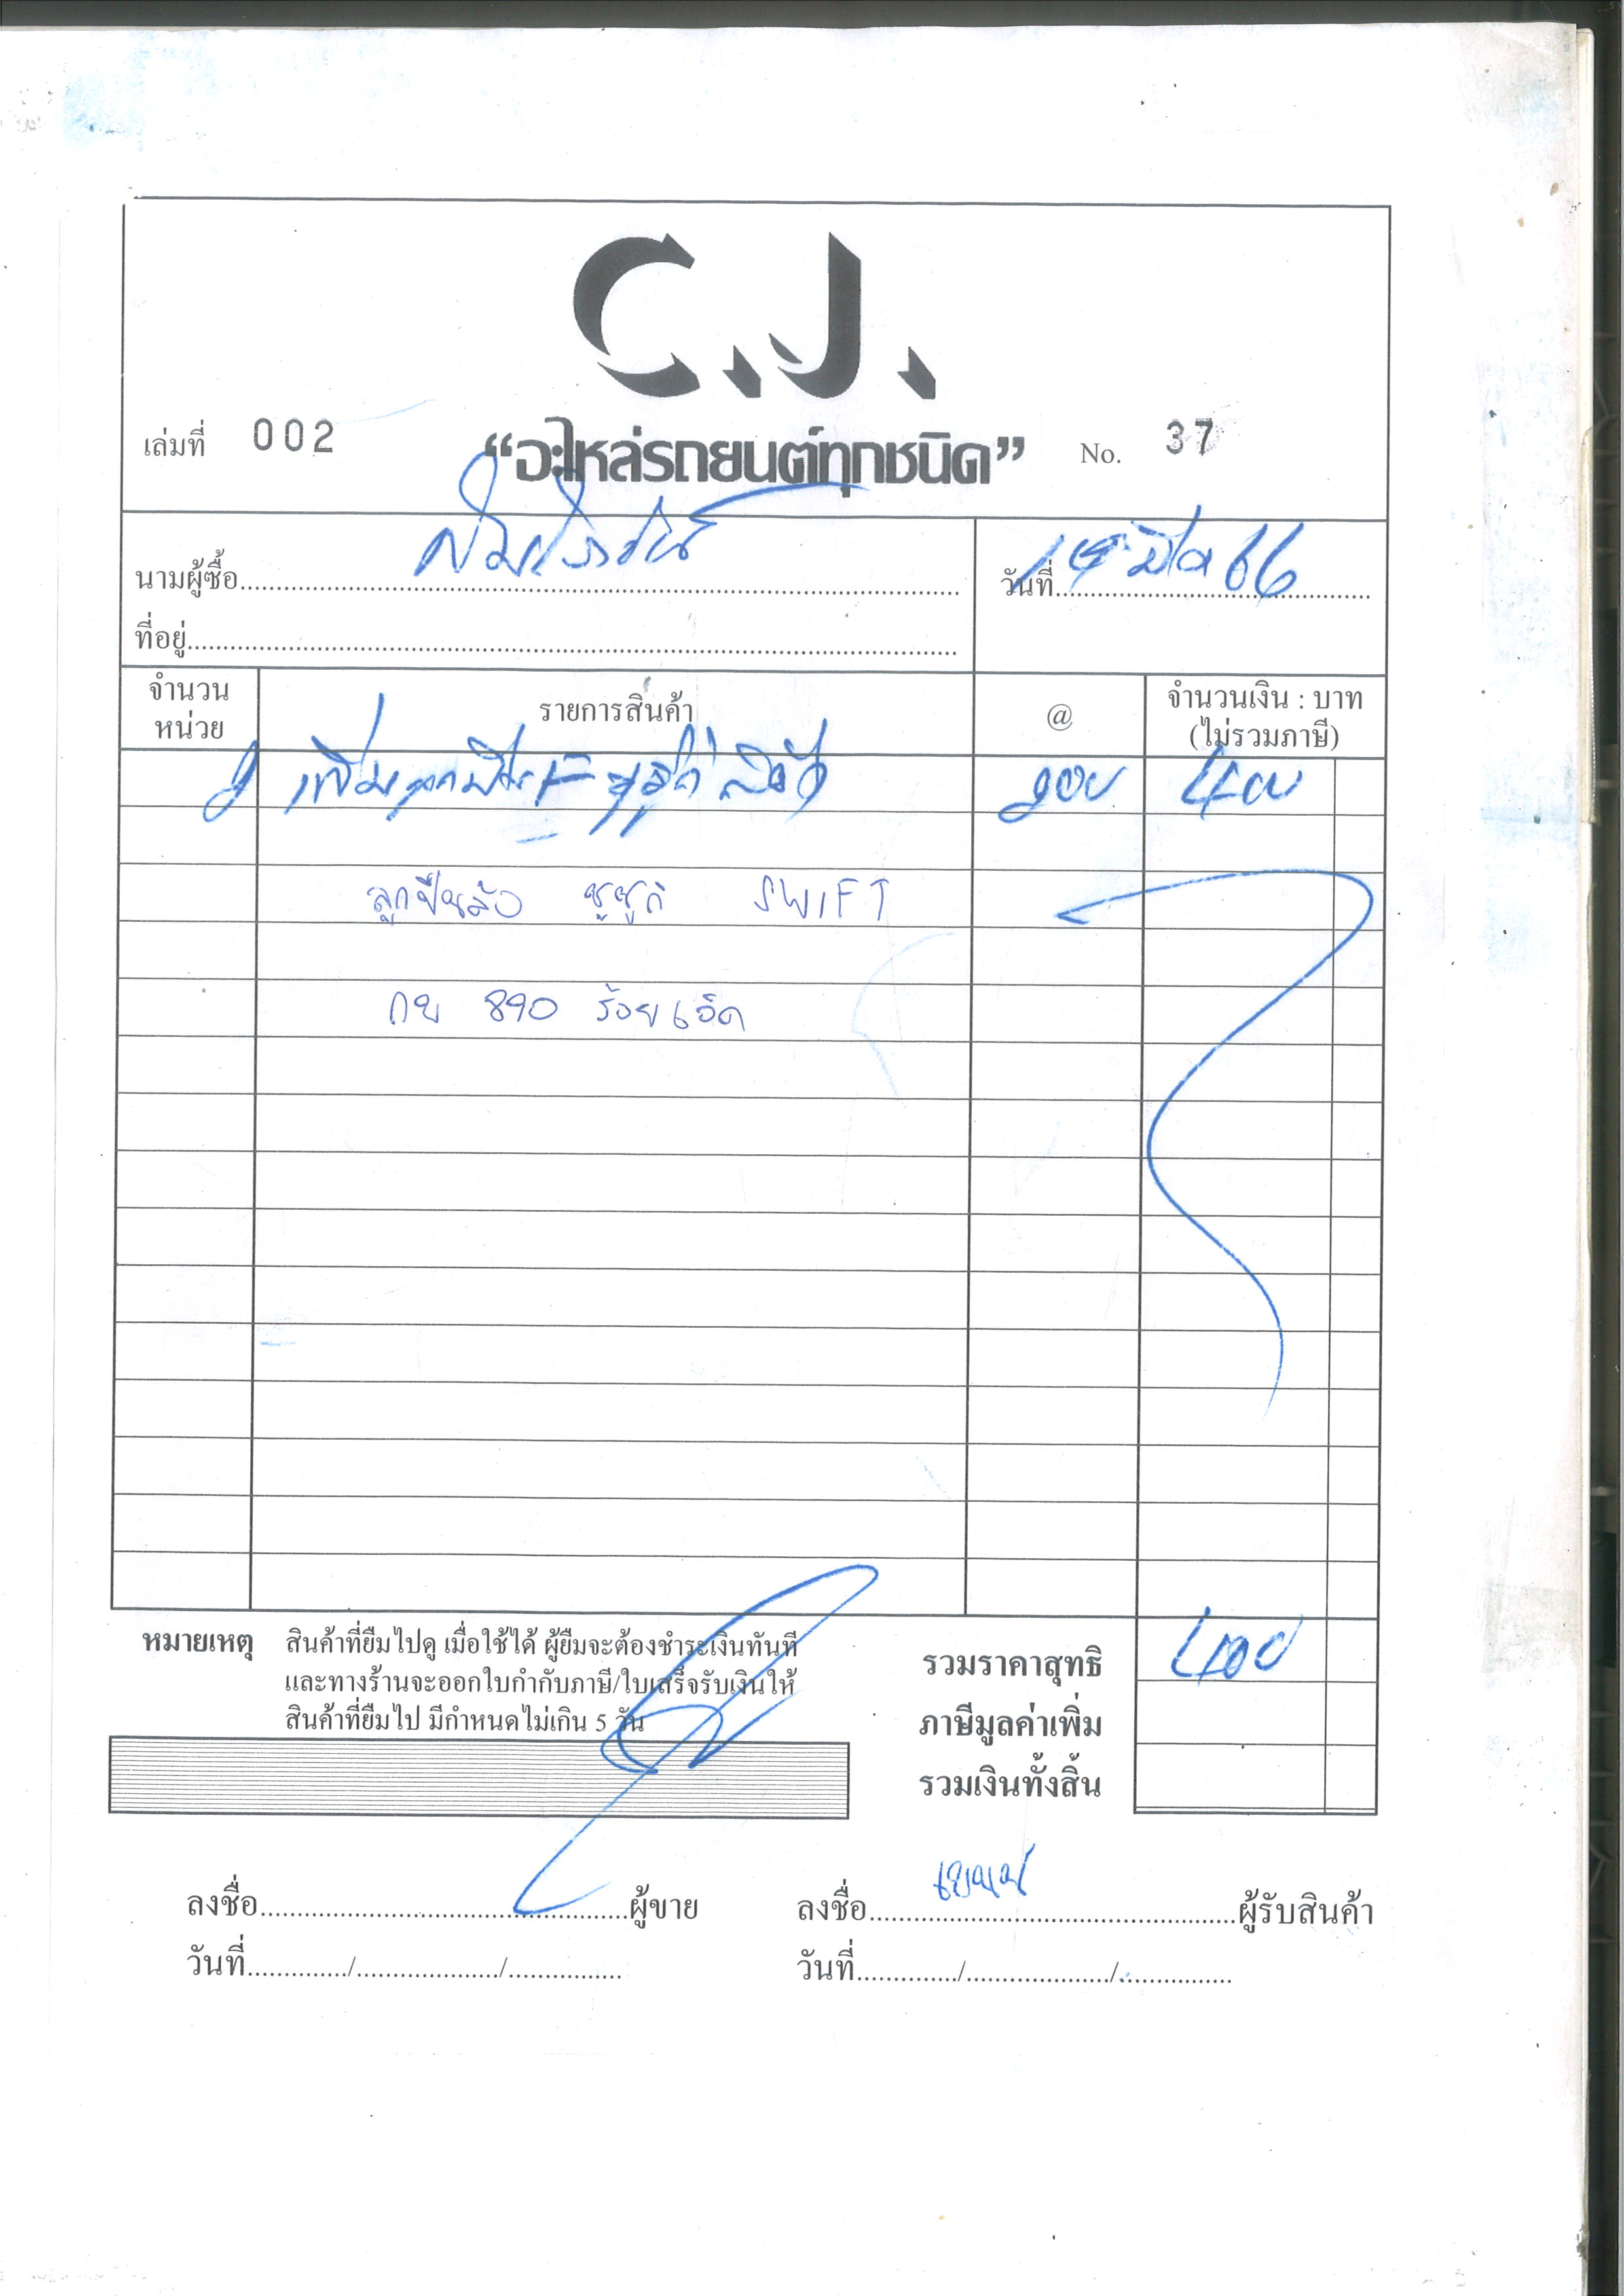 C.J.
เล่มที่ 002 “อะไหล่รถยนต์ทุกชนิด” No. 37
นามผู้ซื้อ
วันที่ 14 มีค 66
ที่อยู่
จำนวน หน่วย รายการสินค้า @ จำนวนเงิน : บาท (ไม่รวมภาษี)
2 200 400
ลูกปืนล้อ ซูซูกิ SWIFT
กข 890 ร้อยเอ็ด
หมายเหตุ สินค้าที่ยืมไปดู เมื่อใช้ได้ ผู้ยืมจะต้องชำระเงินทันที
และทางร้านจะออกใบกำกับภาษี/ใบเสร็จรับเงินให้
สินค้าที่ยืมไป มีกำหนดไม่เกิน 5 วัน
รวมราคาสุทธิ 400
ภาษีมูลค่าเพิ่ม
รวมเงินทั้งสิ้น
ลงชื่อ ผู้ขาย ลงชื่อ ผู้รับสินค้า
วันที่ / / วันที่ / /